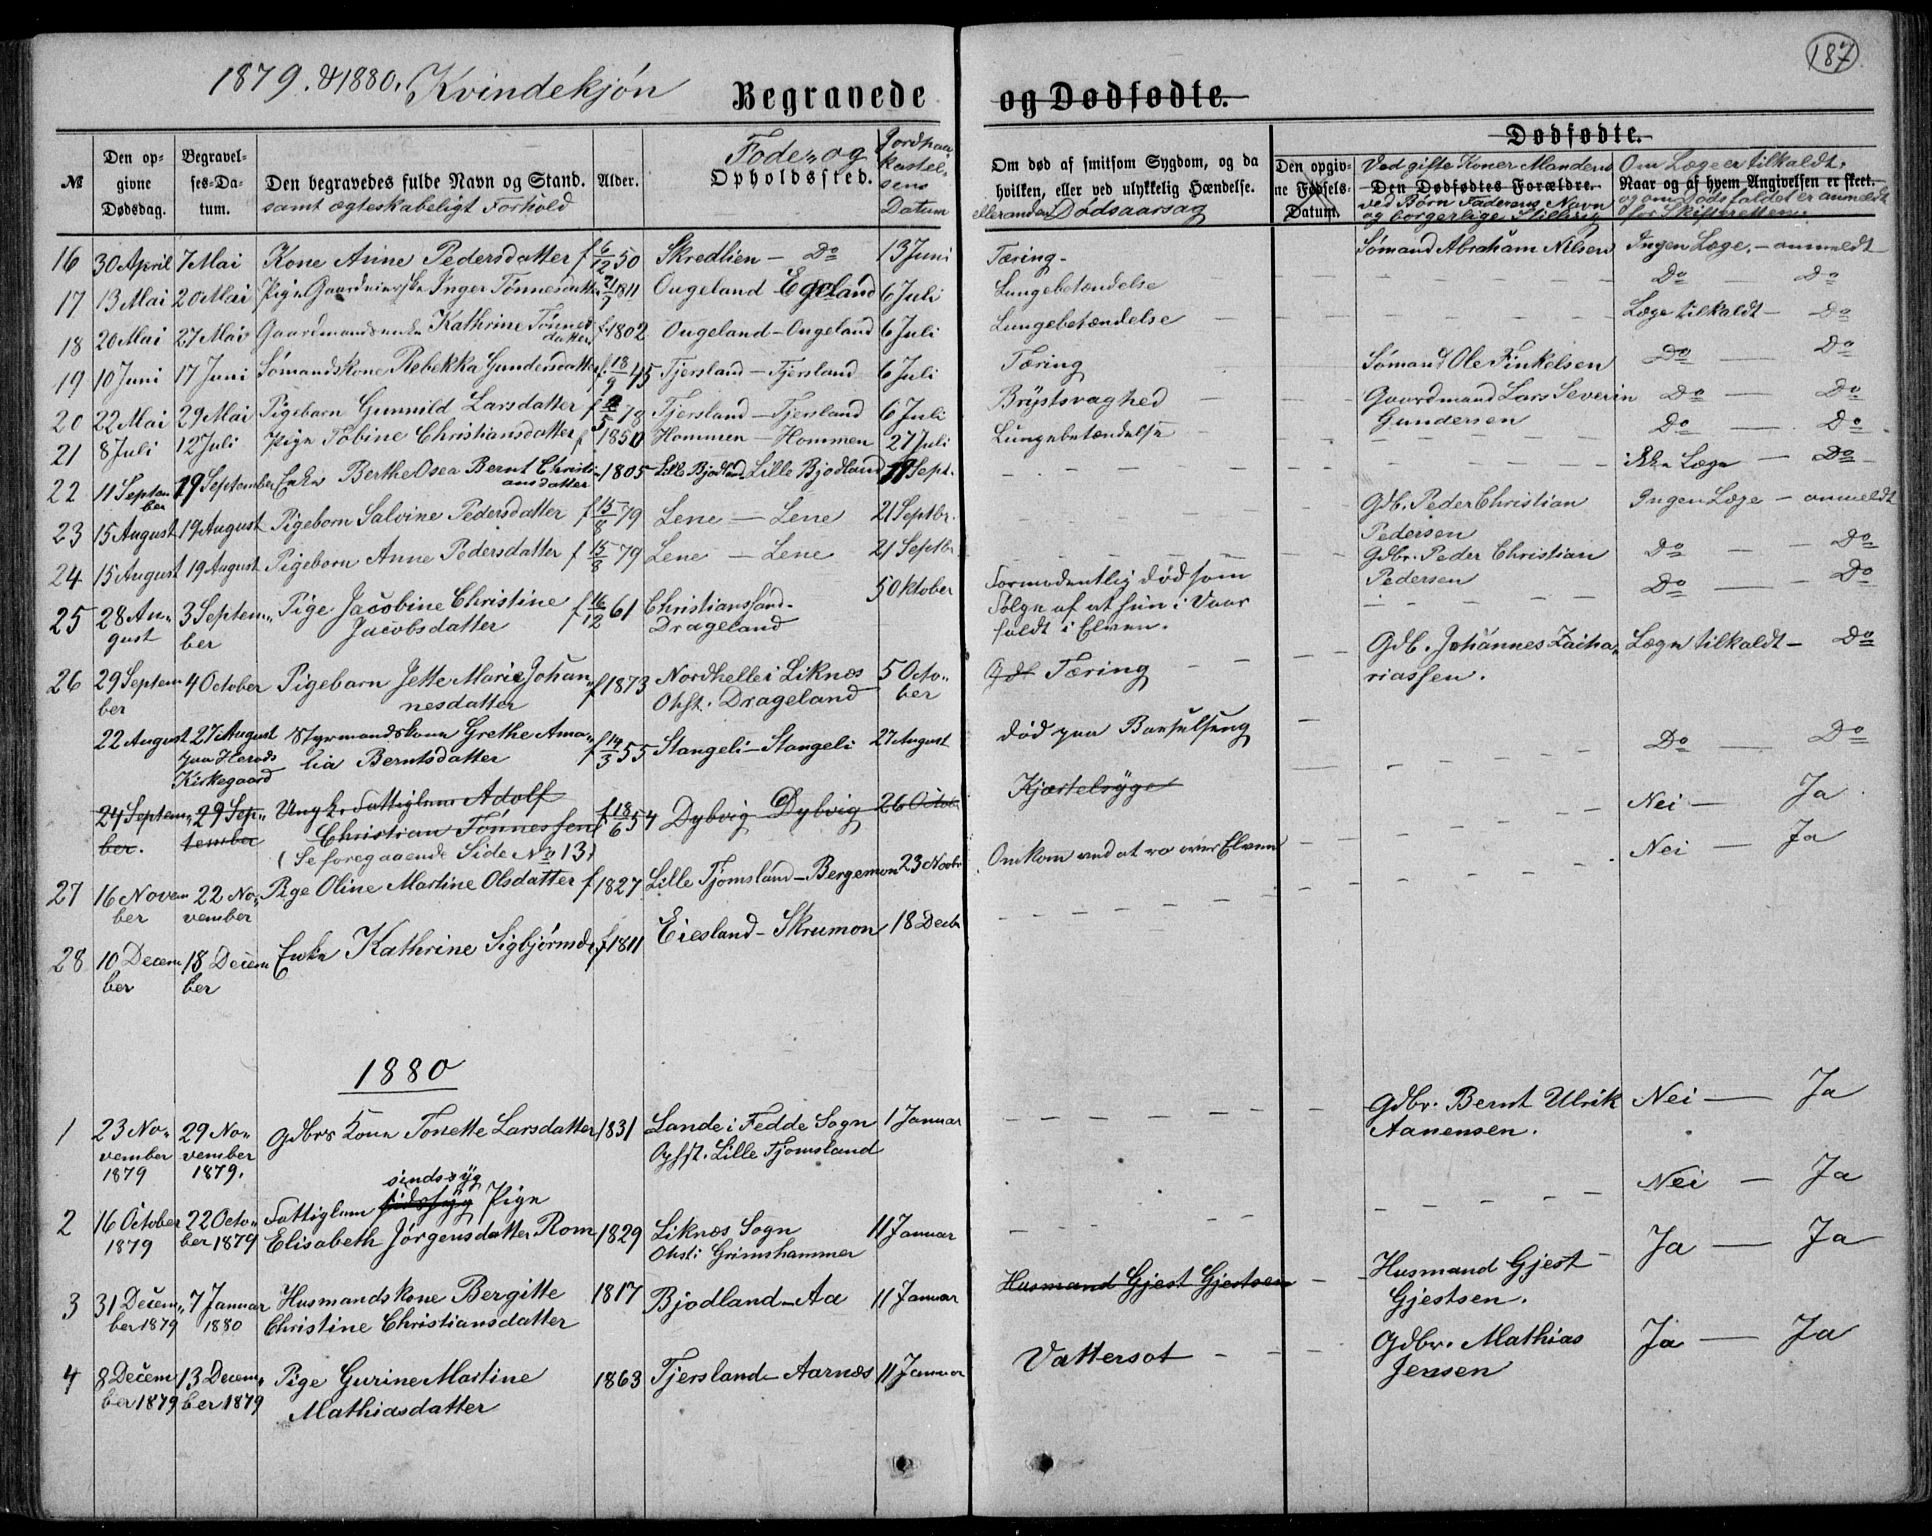 187
1879. & 1880. Kvindekjön Begravede og Dødfødte.
Dødfødte.
№
Den opgivne Dødsdag.
Begravelses-Datum.
Den begravedes fulde Navn og Stand.
samt ægteskabeligt Forhold
Alder.
Føde- og
Opholdssted.
Jordpaakastelsens Datum
Om død af smitsom Sygdom, og da
hvilken, eller ved ulykkelig Hændelse.
eller anden Dødsaarsag
Den opgivne Fødsels-Datum.
Ved gifte Koner Mandens
Den Dødfødtes Forældre.
ved Børn Faderens Navn
og borgerlige Stilling
Om Læge er tilkaldt.
Naar og af hvem Angivelsen er skeet.
og om Dødsfaldet er anmeldt
for Skifteretten.
16 30 April 7 Mai Kone Anne Pedersdatter f 6/12 50 Skredlien - Do 13 Juni Tæring - Sømand Abraham Nilsen Ingen Læge. - anmeldt
17 13 Mai 20 Mai Pige Inger Tønnesdatter 1811 Ougeland - Egeland 6 Juli Lungebetændelse Do - Do
18 20 Mai 27 Mai Gaardmandsenke Kathrine Tønnesdatter f. 1802 Ougeland - Ougeland 6 Juli Lungebetændelse Læge tilkaldt - Do
19 10 Juni 17 Juni Sømandskone Rebekka Gundersdatter f. 18/9 45 Tjersland - Tjersland 6 Juli Tæring Sømand Ole Tinkelsen Do Do
20 22 Mai 29 Mai Pigebarn Gunnild Larsdatter f 78 Tjersland - Tjersland 6 Juli Brystsvaghed Gaardmand Lars Severin Do - Do
Gundersen
21 8 Juli 12 Juli Pige Tobine Christiansdatter f 1850 Hommen - Hommen 27 Juli Lungebetændelse Do - Do
22 11 September 19 September Enke Berthe Osea Bernt Christiansdatter 1805 Lille Bjodland Lille Bjodland 19 Sept. ikke Læge - Do
23 15 August 19 August Pigebarn Salvine Pedersdatter f 15/8 79 Lene - Lene 21 Septbr. Gdb. Peder Christian Ingen Læge - anmeldt
Pedersen
24 15 August 19 August Pigebarn Anne Pedersdatter f 15/8 79 Lene - Lene 21 Septbr Gdbr. Peder Christian Do - Do
Pedersen
25 28 August 3 September Pige Jacobine Christine f 16/12 61 Christianssand - 5 Oktober Formodentlig død som Do - Do
Jacobsdatter Drageland Følge af at hun i Vaar
faldt i Elven.
26 29 September 4 October Pigebarn Jette Marie Johan- f 1873 Nordhelle i Liknæs 5 October Tæring Gdb. Johannes Zacha- Læge tilkaldt - Do
nesdatter Ohst. Drageland riassen.
22 August 27 August Styrmandskone Grethe Ama- f 14/3 55 Stangeli - Stangeli 27 August død paa Barselseng Do - Do
paa Herads lia Berntsdatter
Kirkegaard
24 September. 29 September Ungk. Fattiglem Adolf f 18/6 54 Dybvig - Dybvig 26 Octbr Kjertelsyge Nei - Ja
Christian Tønnessen
(Se foregaaende Side No 13)
27 16 November 22 November Pige Oline Martine Olsdatter f 1827 Lille Tjomsland - Bergemon 23 Novbr Omkom ved at ro over Elven Nei - Ja
28 10 December 18 December Enke Kathrine Sigbjörnsd. f. 1811 Eiesland - Skrumon 18 Decbr
1880
1 23 November 1879 29 November 1879. Gdbrs Kone Tonette Larsdatter 1831 Lande i Fedde Sogn 1 Januar Gdbr. Bernt Ulrik Nei - Ja
Ophst. Lille Tjomsland Aanensen.
sindssyg
2 16 October 1879 22 October 1879 Fattiglem Pige Nei - Ja
Elisabeth Jörgensdatter Rom 1829 Liknæs Sogn 11 Januar
Ohsti Grimshammer
3 31 December 1879 7 Januar 1880 Husmandskone Bergitte 1817 Bjodland - Aa 11 Januar Husmand Gjest Gjestsen Husmand Gjest Ja - Ja
Christine Christiansdatter Gjestsen.
4 8 December 1879 13 December 1879 Pige Gurine Martine 1863 Tjersland - Aarnæs 11 Januar Vattersot Gdbr. Mathias Ja - Ja
Mathiasdatter Jensen